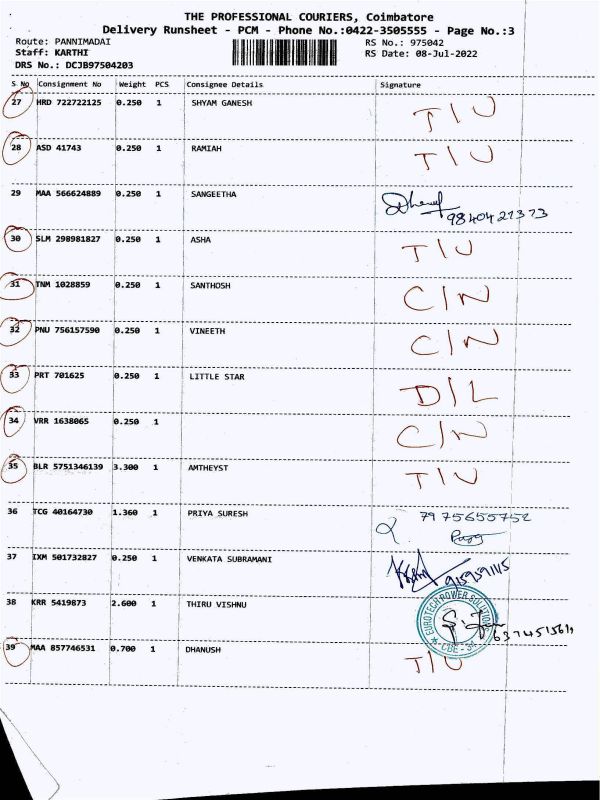 THE PROFESSIONAL COURIERS, Coimbatore
Delivery Runsheet - PCM - Phone No.:0422-3505555 - Page No.:3
Route: PANNIMADAI RS No.: 975042
Staff: KARTHI RS Date: 08-Jul-2022
DRS No.: DCJB97504203
S No Consignment No Weight PCS Consignee Details Signature
27 HRD 722722125 0.250 1 SHYAM GANESH T/U
28 ASD 41743 0.250 1 RAMIAH T/U
29 MAA 566624889 0.250 1 SANGEETHA
9840427373
30 SLM 298981827 0.250 1 ASHA T/U
31 TNM 1028859 0.250 1 SANTHOSH C/N
32 PNU 756157590 0.250 1 VINEETH C/N
33 PRT 701625 0.250 1 LITTLE STAR D/L
34 VRR 1638065 0.250 1 C/N
35 BLR 5751346139 3.300 1 AMTHEYST T/U
36 TCG 40164730 1.360 1 PRIYA SURESH 7975655752
37 IXM 501732827 0.250 1 VENKATA SUBRAMANI
38 KRR 5419873 2.600 1 THIRU VISHNU
EUROTECH POWER SOLUTIONS
CBE - 34
39 MAA 857746531 0.700 1 DHANUSH T/U